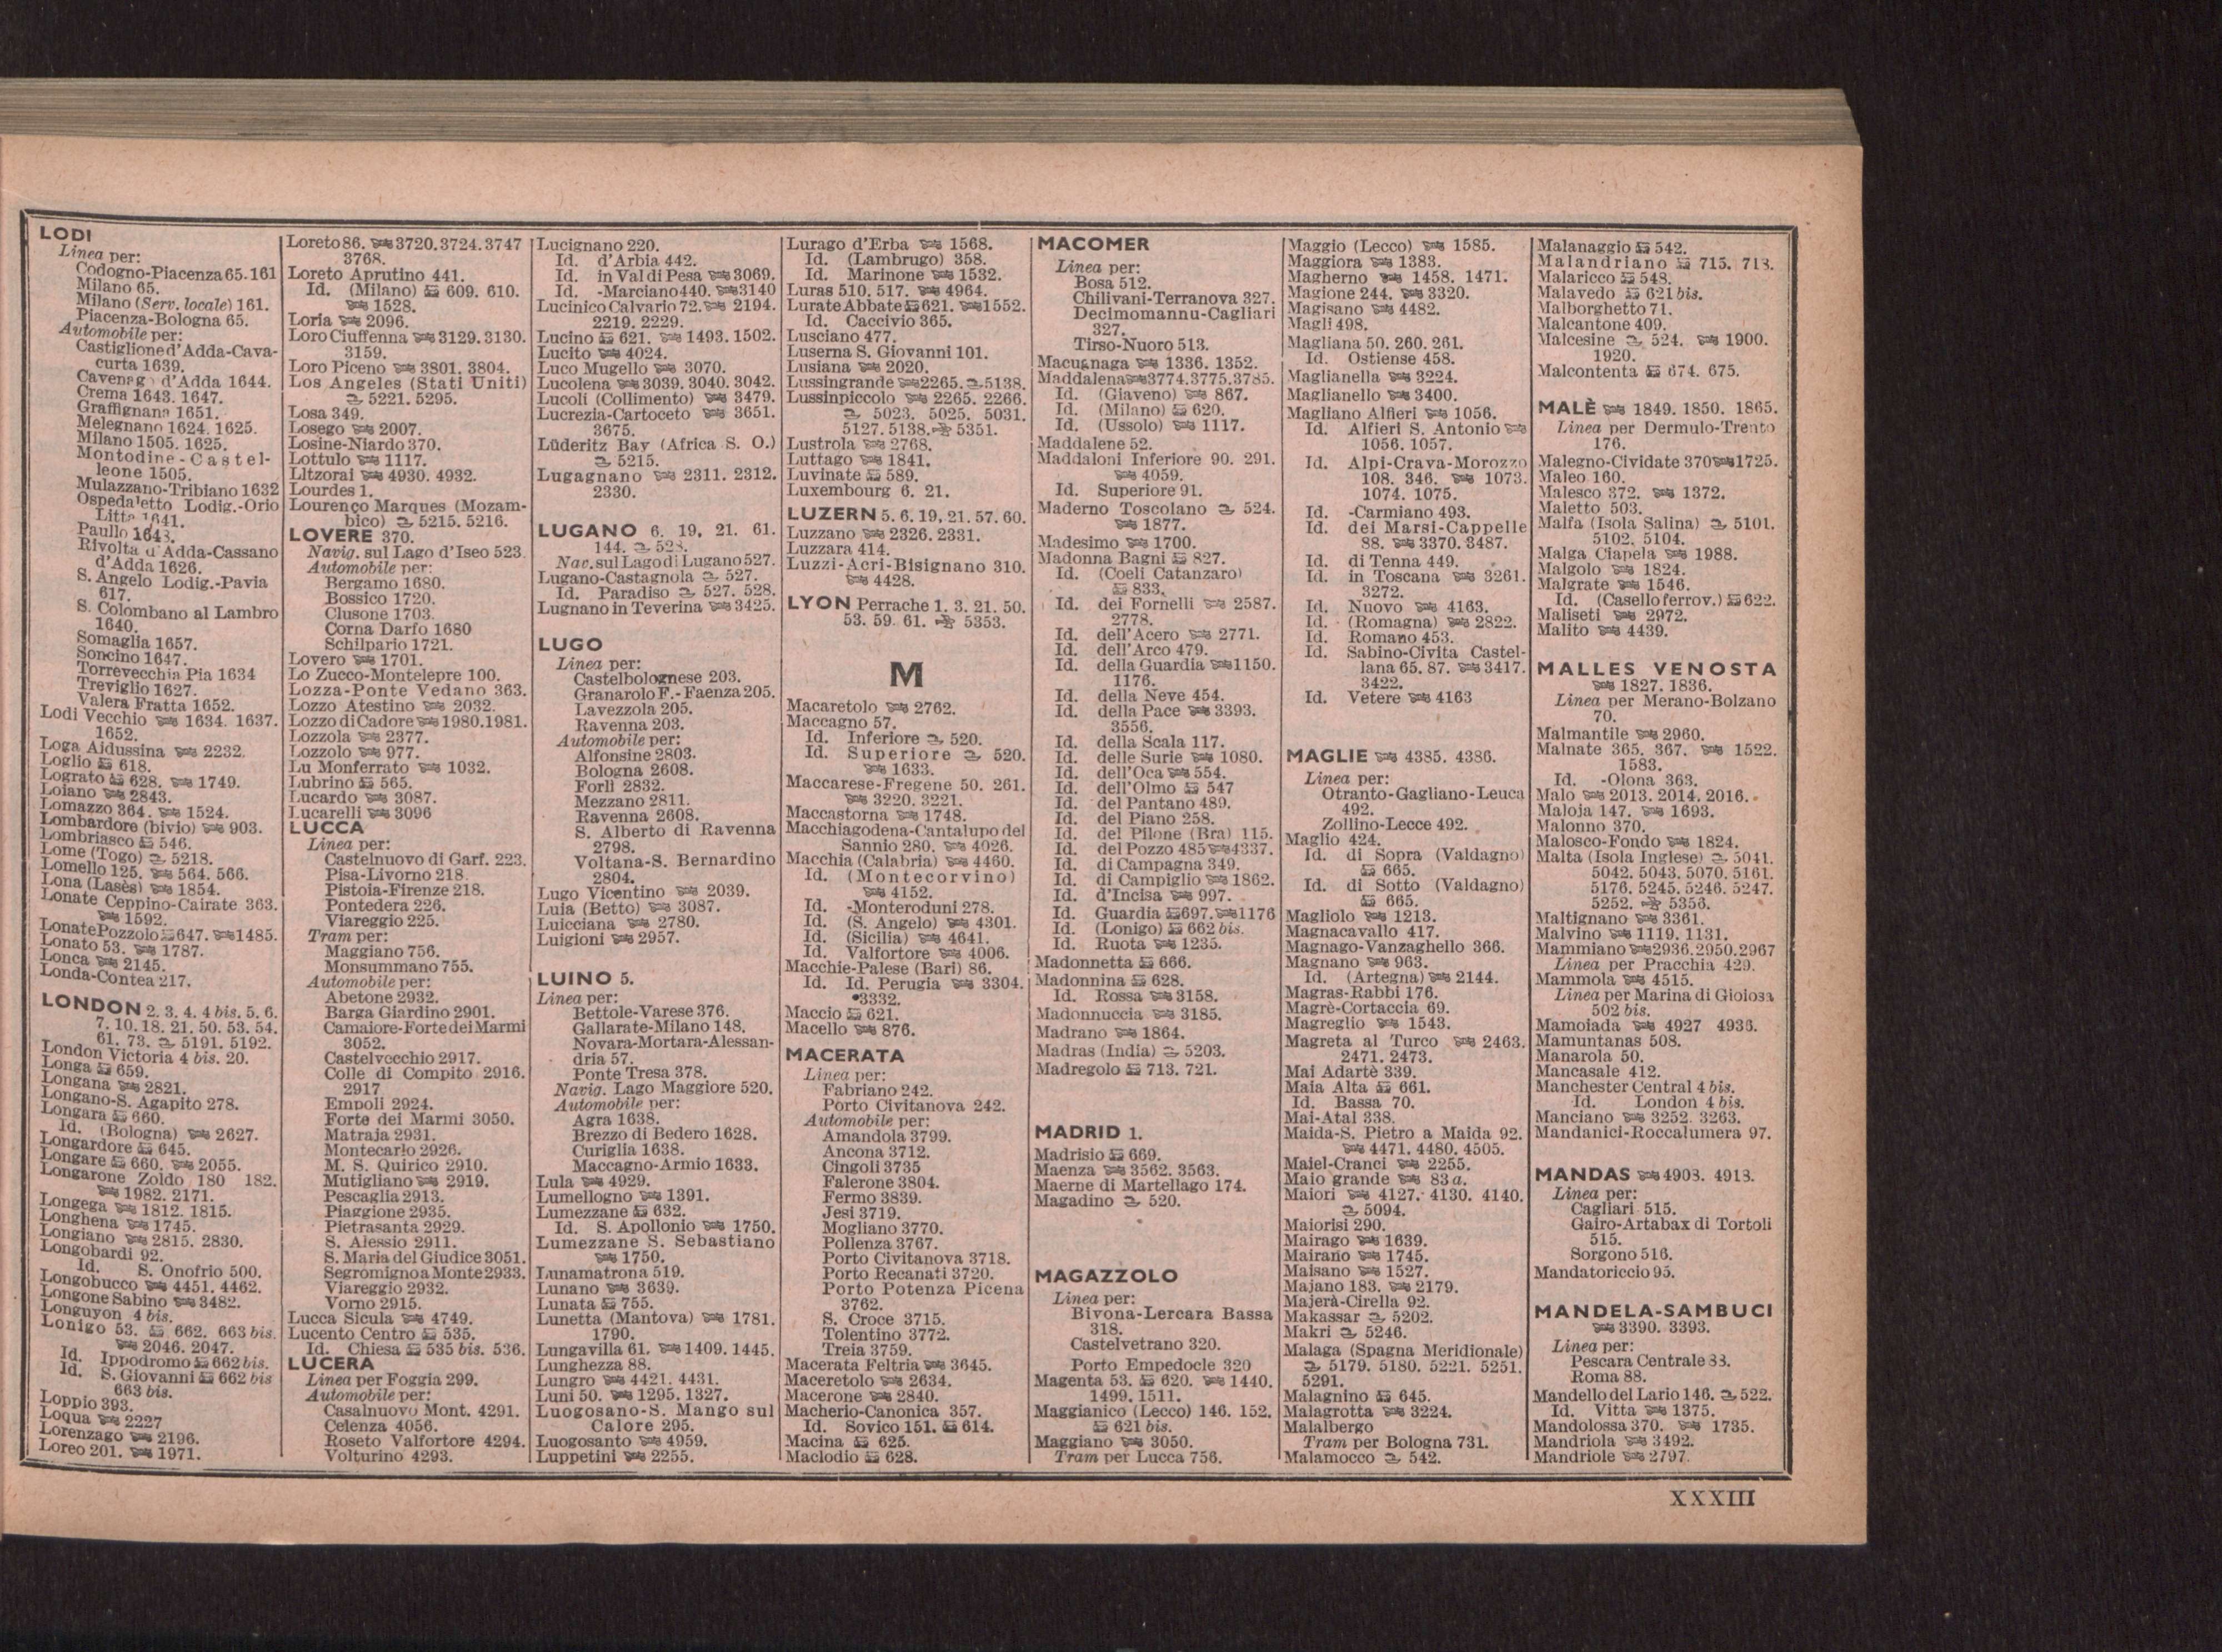 LODI
Linea per:
Codogno-Piacenza 65. 161
Milano 65.
Milano (Serv. locale) 161.
Piacenza-Bologna 65.
Automobile per:
Castiglione d'Adda-Cava-
curta 1639.
d'Adda 1644.
Crema 1643. 1647.
Graffignana 1651.
Melegnano 1624. 1625.
Milano 1505. 1625.
Montodine-Castel-
leone 1505.
Mulazzano-Tribiano 1632
Ospedaletto Lodig.-Orio
Litta 1641.
Paullo 1643.
Rivolta d'Adda-Cassano
d'Adda 1626.
S. Angelo Lodig.-Pavia
617.
S. Colombano al Lambro
1640.
Somaglia 1657.
Soncino 1647.
Torrevecchia Pia 1634
Treviglio 1627.
Valera Fratta 1652.
Lodi Vecchio 1634. 1637.
1652.
Loga Aidussina 2232.
Loglio 618.
Lograto 628. 1749.
Loiano 2843.
Lomazzo 364. 1524.
Lombardore (bivio) 903.
Lombriasco 546.
Lome (Togo) 5218.
Lomello 125. 564. 566.
Lona (Lasès) 1854.
Lonate Ceppino-Cairate 363.
1592.
Lonate Pozzolo 647. 1485.
Lonato 53. 1787.
Lonca 2145.
Londa-Contea 217.
LONDON 2. 3. 4. 4 bis. 5. 6.
7. 10. 18. 21. 50. 53. 54.
61. 73. 5191. 5192.
London Victoria 4 bis. 20.
Longa 659.
Longana 2821.
Longano-S. Agapito 278.
Longara 660.
Id. (Bologna) 2627.
Longardore 645.
Longare 660. 2055.
Longarone Zoldo 180 182.
1982. 2171.
Longega 1812. 1815.
Longhena 1745.
Longiano 2815. 2830.
Longobardi 92.
Id. S. Onofrio 500.
Longobucco 4451. 4462.
Longone Sabino 3482.
Longuyon 4 bis.
Lonigo 53. 662. 663 bis.
2046. 2047.
Id. Ippodromo 662 bis.
Id. S. Giovanni 662 bis
663 bis.
Loppio 393.
Loqua 2227
Lorenzago 2196.
Loreo 201. 1971.
Loreto 86. 3720. 3724. 3747
3768.
Loreto Aprutino 441.
Id. (Milano) 609. 610.
1528.
Loria 2096.
Loro Ciuffenna 3129. 3130.
3159.
Loro Piceno 3801. 3804.
Los Angeles (Stati Uniti)
5221. 5295.
Losa 349.
Losego 2007.
Losine-Niardo 370.
Lottulo 1117.
Lotzorai 4930. 4932.
Lourdes 1.
Lourenço Marques (Mozam-
bico) 5215. 5216.
LOVERE 370.
Navig. sul Lago d'Iseo 523.
Automobile per:
Bergamo 1680.
Bossico 1720.
Clusone 1703.
Corna Darfo 1680
Schilpario 1721.
Lovero 1701.
Lo Zucco-Montelepre 100.
Lozza-Ponte Vedano 363.
Lozzo Atestino 2032.
Lozzo di Cadore 1980. 1981.
Lozzola 2377.
Lozzolo 977.
Lu Monferrato 1032.
Lubrino 565.
Lucardo 3087.
Lucarelli 3096
LUCCA
Linea per:
Castelnuovo di Garf. 223.
Pisa-Livorno 218.
Pistoia-Firenze 218.
Pontedera 226.
Viareggio 225.
Tram per:
Maggiano 756.
Monsummano 755.
Automobile per:
Abetone 2932.
Barga Giardino 2901.
Camaiore-Forte dei Marmi
3052.
Castelvecchio 2917.
Colle di Compito 2916.
2917
Empoli 2924.
Forte dei Marmi 3050.
Matraja 2931.
Montecarlo 2926.
M. S. Quirico 2910.
Mutigliano 2919.
Pescaglia 2913.
Piaggione 2935.
Pietrasanta 2929.
S. Alessio 2911.
S. Maria del Giudice 3051.
Segromigno a Monte 2933.
Viareggio 2932.
Vorno 2915.
Lucca Sicula 4749.
Lucento Centro 535.
Id. Chiesa 535 bis. 536.
LUCERA
Linea per Foggia 299.
Automobile per:
Casalnuovo Mont. 4291.
Celenza 4056.
Roseto Valfortore 4294.
Volturino 4293.
Lucignano 220.
Id. d'Arbia 442.
Id. in Val di Pesa 3069.
Id. -Marciano 440. 3140
Lucinico Calvario 72. 2194.
2219. 2229.
Lucino 621. 1493. 1502.
Lucito 4024.
Luco Mugello 3070.
Lucolena 3039. 3040. 3042.
Lucoli (Collimento) 3479.
Lucrezia-Cartoceto 3651.
3675.
Lüderitz Bay (Africa S. O.)
5215.
Lugagnano 2311. 2312.
2330.
LUGANO 6. 19. 21. 61.
144. 528.
Nav. sul Lago di Lugano 527.
Lugano-Castagnola 527.
Id. Paradiso 527. 528.
Lugnano in Teverina 3425.
LUGO
Linea per:
Castelbolognese 203.
Granarolo F.-Faenza 205.
Lavezzola 205.
Ravenna 203.
Automobile per:
Alfonsine 2803.
Bologna 2608.
Forlì 2832.
Mezzano 2811.
Ravenna 2608.
S. Alberto di Ravenna
2798.
Voltana-S. Bernardino
2804.
Lugo Vicentino 2039.
Luia (Betto) 3087.
Luicciana 2780.
Luigioni 2957.
LUINO 5.
Linea per:
Bettole-Varese 376.
Gallarate-Milano 148.
Novara-Mortara-Alessan-
dria 57.
Ponte Tresa 378.
Navig. Lago Maggiore 520.
Automobile per:
Agra 1638.
Brezzo di Bedero 1628.
Curiglia 1638.
Maccagno-Armio 1633.
Lula 4929.
Lumellogno 1391.
Lumezzane 632.
Id. S. Apollonio 1750.
Lumezzane S. Sebastiano
1750.
Lunamatrona 519.
Lunano 3639.
Lunata 755.
Lunetta (Mantova) 1781.
1790.
Lungavilla 61. 1409. 1445.
Lunghezza 88.
Lungro 4421. 4431.
Luni 50. 1295. 1327.
Luogosano-S. Mango sul
Calore 295.
Luogosanto 4959.
Luppetini 2255.
Lurago d'Erba 1568.
Id. (Lambrugo) 358.
Id. Marinone 1532.
Luras 510. 517. 4964.
Lurate Abbate 621. 1552.
Id. Caccivio 365.
Lusciano 477.
Luserna S. Giovanni 101.
Lusiana 2020.
Lussingrande 2265. 5138.
Lussinpiccolo 2265. 2266.
5023. 5025. 5031.
5127. 5138. 5351.
Lustrola 2768.
Luttago 1841.
Luvinate 589.
Luxembourg 6. 21.
LUZERN 5. 6. 19. 21. 57. 60.
Luzzano 2326. 2331.
Luzzara 414.
Luzzi-Acri-Bisignano 310.
4428.
LYON Perrache 1. 3. 21. 50.
53. 59. 61. 5353.
M
Macaretolo 2762.
Maccagno 57.
Id. Inferiore 520.
Id. Superiore 520.
1633.
Maccarese-Fregene 50. 261.
3220. 3221.
Maccastorna 1748.
Macchiagodena-Cantalupo del
Sannio 280. 4026.
Macchia (Calabria) 4460.
Id. (Montecorvino)
4152.
Id. -Monteroduni 278.
Id. (S. Angelo) 4301.
Id. (Sicilia) 4641.
Id. Valfortore 4006.
Macchie-Palese (Bari) 86.
Id. Id. Perugia 3304.
3332.
Maccio 621.
Macello 876.
MACERATA
Linea per:
Fabriano 242.
Porto Civitanova 242.
Automobile per:
Amandola 3799.
Ancona 3712.
Cingoli 3735
Falerone 3804.
Fermo 3839.
Jesi 3719.
Mogliano 3770.
Pollenza 3767.
Porto Civitanova 3718.
Porto Recanati 3720.
Porto Potenza Picena
3762.
S. Croce 3715.
Tolentino 3772.
Treia 3759.
Macerata Feltria 3645.
Maceretolo 2634.
Macerone 2840.
Macherio-Canonica 357.
Id. Sovico 151. 614.
Macina 625.
Maclodio 628.
MACOMER
Linea per:
Bosa 512.
Chilivani-Terranova 327.
Decimomannu-Cagliari
327.
Tirso-Nuoro 513.
Macugnaga 1336. 1352.
Maddalena 3774. 3775. 3785.
Id. (Giaveno) 867.
Id. (Milano) 620.
Id. (Ussolo) 1117.
Maddalene 52.
Maddaloni Inferiore 90. 291.
4059.
Id. Superiore 91.
Maderno Toscolano 524.
1877.
Madesimo 1700.
Madonna Bagni 827.
Id. (Coeli Catanzaro)
833.
Id. dei Fornelli 2587.
2778.
Id. dell'Acero 2771.
Id. dell'Arco 479.
Id. della Guardia 1150.
1176.
Id. della Neve 454.
Id. della Pace 3393.
3556.
Id. della Scala 117.
Id. delle Surie 1080.
Id. dell'Oca 554.
Id. dell'Olmo 547
Id. del Pantano 489.
Id. del Piano 258.
Id. del Pilone (Bra) 115.
Id. del Pozzo 485 4337.
Id. di Campagna 349.
Id. di Campiglio 1862.
Id. d'Incisa 997.
Id. Guardia 697. 1176
Id. (Lonigo) 662 bis.
Id. Ruota 1235.
Madonnetta 666.
Madonnina 628.
Id. Rossa 3158.
Madonnuccia 3185.
Madrano 1864.
Madras (India) 5203.
Madregolo 713. 721.
MADRID 1.
Madrisio 669.
Maenza 3562. 3563.
Maerne di Martellago 174.
Magadino 520.
MAGAZZOLO
Linea per:
Bivona-Lercara Bassa
318.
Castelvetrano 320.
Porto Empedocle 320
Magenta 53. 620. 1440.
1499. 1511.
Maggianico (Lecco) 146. 152.
621 bis.
Maggiano 3050.
Tram per Lucca 756.
Maggio (Lecco) 1585.
Maggiora 1383.
Magherno 1458. 1471.
Magione 244. 3320.
Magisano 4482.
Magli 498.
Magliana 50. 260. 261.
Id. Ostiense 458.
Maglianella 3224.
Maglianello 3400.
Magliano Alfieri 1056.
Id. Alfieri S. Antonio
1056. 1057.
Id. Alpi-Crava-Morozzo
108. 346. 1073.
1074. 1075.
Id. -Carmiano 493.
Id. dei Marsi-Cappelle
88. 3370. 3487.
Id. di Tenna 449.
Id. in Toscana 3261.
3272.
Id. Nuovo 4163.
Id. (Romagna) 2822.
Id. Romano 453.
Id. Sabino-Civita Castel-
lana 65. 87. 3417.
3422.
Id. Vetere 4163
MAGLIE 4385. 4386.
Linea per:
Otranto-Gagliano-Leuca
492.
Zollino-Lecce 492.
Maglio 424.
Id. di Sopra (Valdagno)
665.
Id. di Sotto (Valdagno)
665.
Magliolo 1213.
Magnacavallo 417.
Magnago-Vanzaghello 366.
Magnano 963.
Id. (Artegna) 2144.
Magras-Rabbi 176.
Magrè-Cortaccia 69.
Magreglio 1543.
Magreta al Turco 2463.
2471. 2473.
Mai Adartè 339.
Maia Alta 661.
Id. Bassa 70.
Mai-Atal 338.
Maida-S. Pietro a Maida 92.
4471. 4480. 4505.
Maiel-Cranci 2255.
Maio grande 83 a.
Maiori 4127. 4130. 4140.
5094.
Maiorisi 290.
Mairago 1639.
Mairano 1745.
Maisano 1527.
Majano 183. 2179.
Majerà-Cirella 92.
Makassar 5202.
Makri 5246.
Malaga (Spagna Meridionale)
5179. 5180. 5221. 5251.
5291.
Malagnino 645.
Malagrotta 3224.
Malalbergo
Tram per Bologna 731.
Malamocco 542.
Malanaggio 542.
Malandriano 715. 718.
Malaricco 548.
Malavedo 621 bis.
Malborghetto 71.
Malcantone 409.
Malcesine 524. 1900.
1920.
Malcontenta 674. 675.
MALÈ 1849. 1850. 1865.
Linea per Dermulo-Trento
176.
Malegno-Cividate 370 1725.
Maleo 160.
Malesco 372. 1372.
Maletto 503.
Malfa (Isola Salina) 5101.
5102. 5104.
Malga Ciapela 1988.
Malgolo 1824.
Malgrate 1546.
Id. (Casello ferrov.) 622.
Maliseti 2972.
Malito 4439.
MALLES VENOSTA
1827. 1836.
Linea per Merano-Bolzano
70.
Malmantile 2960.
Malnate 365. 367. 1522.
1583.
Id. -Olona 363.
Malo 2013. 2014. 2016.
Maloja 147. 1693.
Malonno 370.
Malosco-Fondo 1824.
Malta (Isola Inglese) 5041.
5042. 5043. 5070. 5161.
5176. 5245. 5246. 5247.
5252. 5356.
Maltignano 3361.
Malvino 1119. 1131.
Mammiano 2936. 2950. 2967
Linea per Pracchia 429.
Mammola 4515.
Linea per Marina di Gioiosa
502 bis.
Mamoiada 4927 4936.
Mamuntanas 508.
Manarola 50.
Mancasale 412.
Manchester Central 4 bis.
Id. London 4 bis.
Manciano 3252. 3263.
Mandanici-Roccalumera 97.
MANDAS 4903. 4913.
Linea per:
Cagliari 515.
Gairo-Artabax di Tortoli
515.
Sorgono 516.
Mandatoriccio 95.
MANDELA-SAMBUCI
3390. 3393.
Linea per:
Pescara Centrale 88.
Roma 88.
Mandello del Lario 146. 522.
Id. Vitta 1375.
Mandolossa 370. 1735.
Mandriola 3492.
Mandriole 2797.
XXXIII